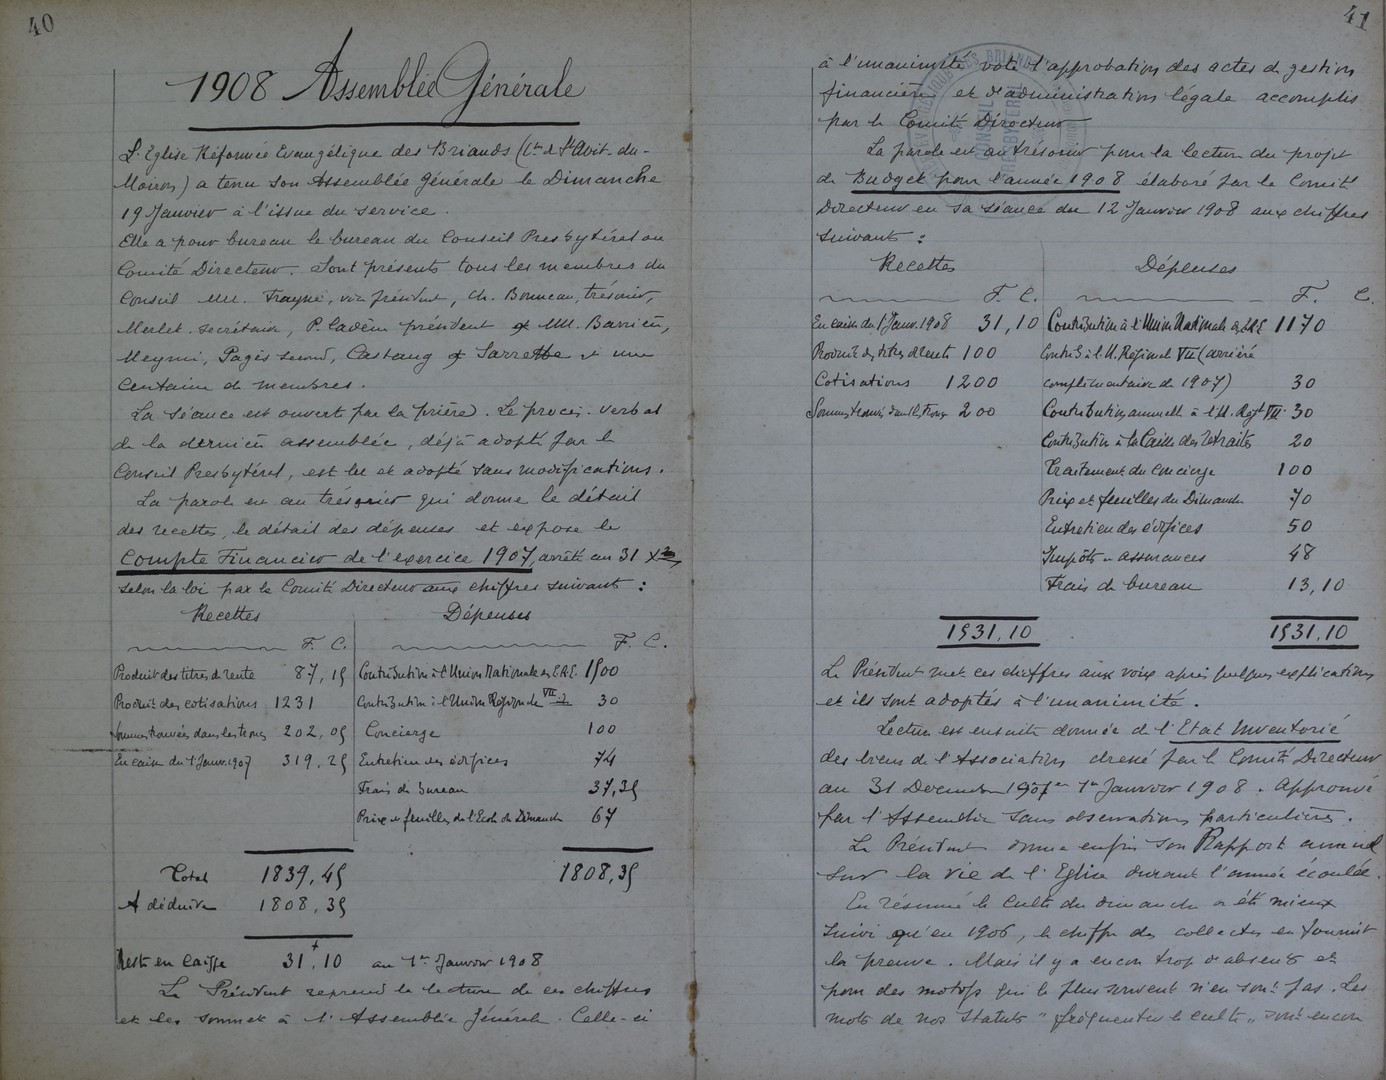 40
1908 Assemblée Générale
L'Eglise Réformée Evangélique des Briands (Cne de St Avit-du-
Moiron) a tenu son Assemblée générale le Dimanche
19 Janvier à l'issue du service.
Elle a pour bureau le bureau du Conseil Presbytéral ou
Comité Directeur. Sont présents tous les membres du
Conseil MM. Frayne, vice président, Ch. Bonneau, trésorier,
Merlet secrétaire, P. Cadène président & MM. Barrière,
Meymi, Pagès second, Castaug & Sarrette et une
centaine de membres.
La séance est ouverte par la prière. Le procès-verbal
de la dernière assemblée, déjà adopté par le
Conseil Presbytéral, est lu et adopté sans modifications.
La parole est au trésorier qui donne le détail
des recettes, le détail des dépenses et expose le
Compte Financier de l'exercice 1907, arrêté au 31 Xbre
selon la loi par le Comité Directeur aux chiffres suivant :
Recettes Dépenses
F. C. F. C.
Produit des titres de rente 87,15 Contribution à l'Union Nationale des E.R.E. 1500
Produit des cotisations 1231 Contribution à l'Union Régionale VII e 30
Sommes trouvées dans les troncs 202,05 Concierge 100
En caisse du 1 Janv. 1907 319,25 Entretien des édifices 74
Frais de bureau 37,35
Prix et feuilles de l'Ecole du Dimanche 67
Total 1839,45 1808,35
A déduire 1808,35
Reste en caisse 31,10 au 1er Janvier 1908
Le Président reprend la lecture de ces chiffres
et les soumet à l'Assemblée générale. Celle-ci
41
à l'unanimité vote l'approbation des actes de gestion
financière et d'administration légale accomplis
par le Comité Directeur
La parole est au trésorier pour la lecture du projet
de Budget pour l'année 1908 élaboré par le Comité
Directeur en sa séance du 12 Janvier 1908 aux chiffres
suivant :
Recettes Dépenses
F. C. F. C.
En caisse du 1 Janv. 1908 31,10 Contribution à l'Union Nationale des E.R.E 1170
Produit des titres de rente 100 Contr. à l'U. Régionale VII (arriéré
Cotisations 1200 complémentaire de 1907) 30
Sommes trouvées dans les troncs 200 Contribution annuelle à l'U. Régle VII 30
Contribution à la Caisse des retraites 20
Traitement du concierge 100
Prix et feuilles du Dimanche 70
Entretien des édifices 50
Impôts & assurances 48
Frais de bureau 13,10
1531,10 1531,10
Le Président met ces chiffres aux voix après quelques explications
et ils sont adoptés à l'unanimité.
Lecture est ensuite donnée de l'Etat Inventorié
des biens de l'Association dressé par le Comité Directeur
au 31 Decembre 1907 1er Janvier 1908. Approuvé
par l'Assemblée sans observations particulières.
Le Président donne enfin son Rapport annuel
sur la vie de l'Eglise durant l'année écoulée.
En résumé le culte du dimanche a été mieux
suivi qu'en 1906, le chiffre des collectes en fournit
la preuve. Mais il y a encore trop d'absents et
pour des motifs qui le plus souvent n'en sont pas. Les
mots de nos Statuts "fréquenter le culte" sont encore